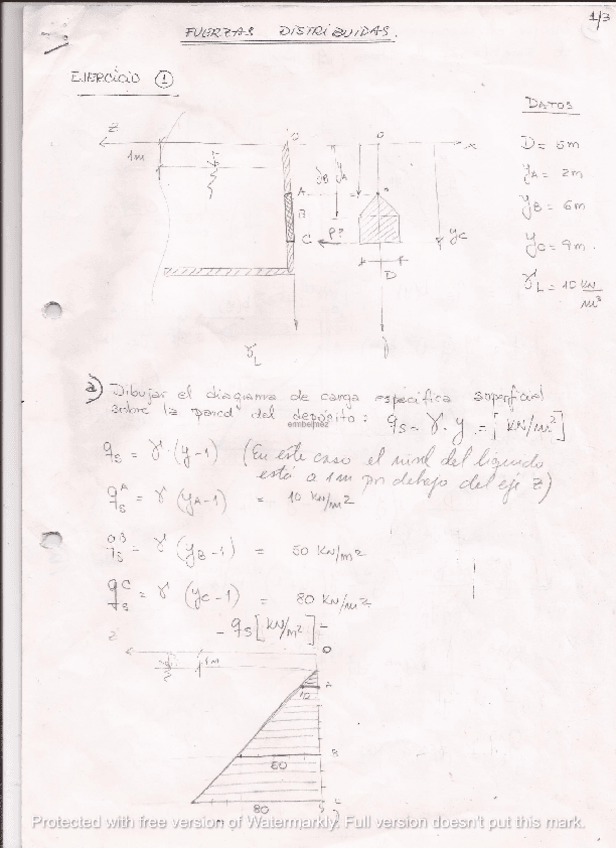 1/3
FUERZAS DISTRIBUIDAS.
EJERCICIO ①
DATOS
D = 5m
yA = 2m
yB = 6m
yC = 9m.
γL = 10 KN/m³
Z
1m
O
O
x
yB
yA
A
B
C
P?
yC
D
γL
a) Dibujar el diagrama de carga específica superficial
sobre la pared del depósito: qs = γ · y = [KN/m²]
qs = γ · (y-1) (En este caso el nivel del líquido
está a 1m por debajo del eje Z)
qsA = γ (yA-1) = 10 KN/m²
qsB = γ (yB-1) = 50 KN/m²
qsC = γ (yC-1) = 80 KN/m²
- qs [KN/m²]
Z
O
1m
A
10
B
80
Protected with free version of Watermarkly. Full version doesn't put this mark.